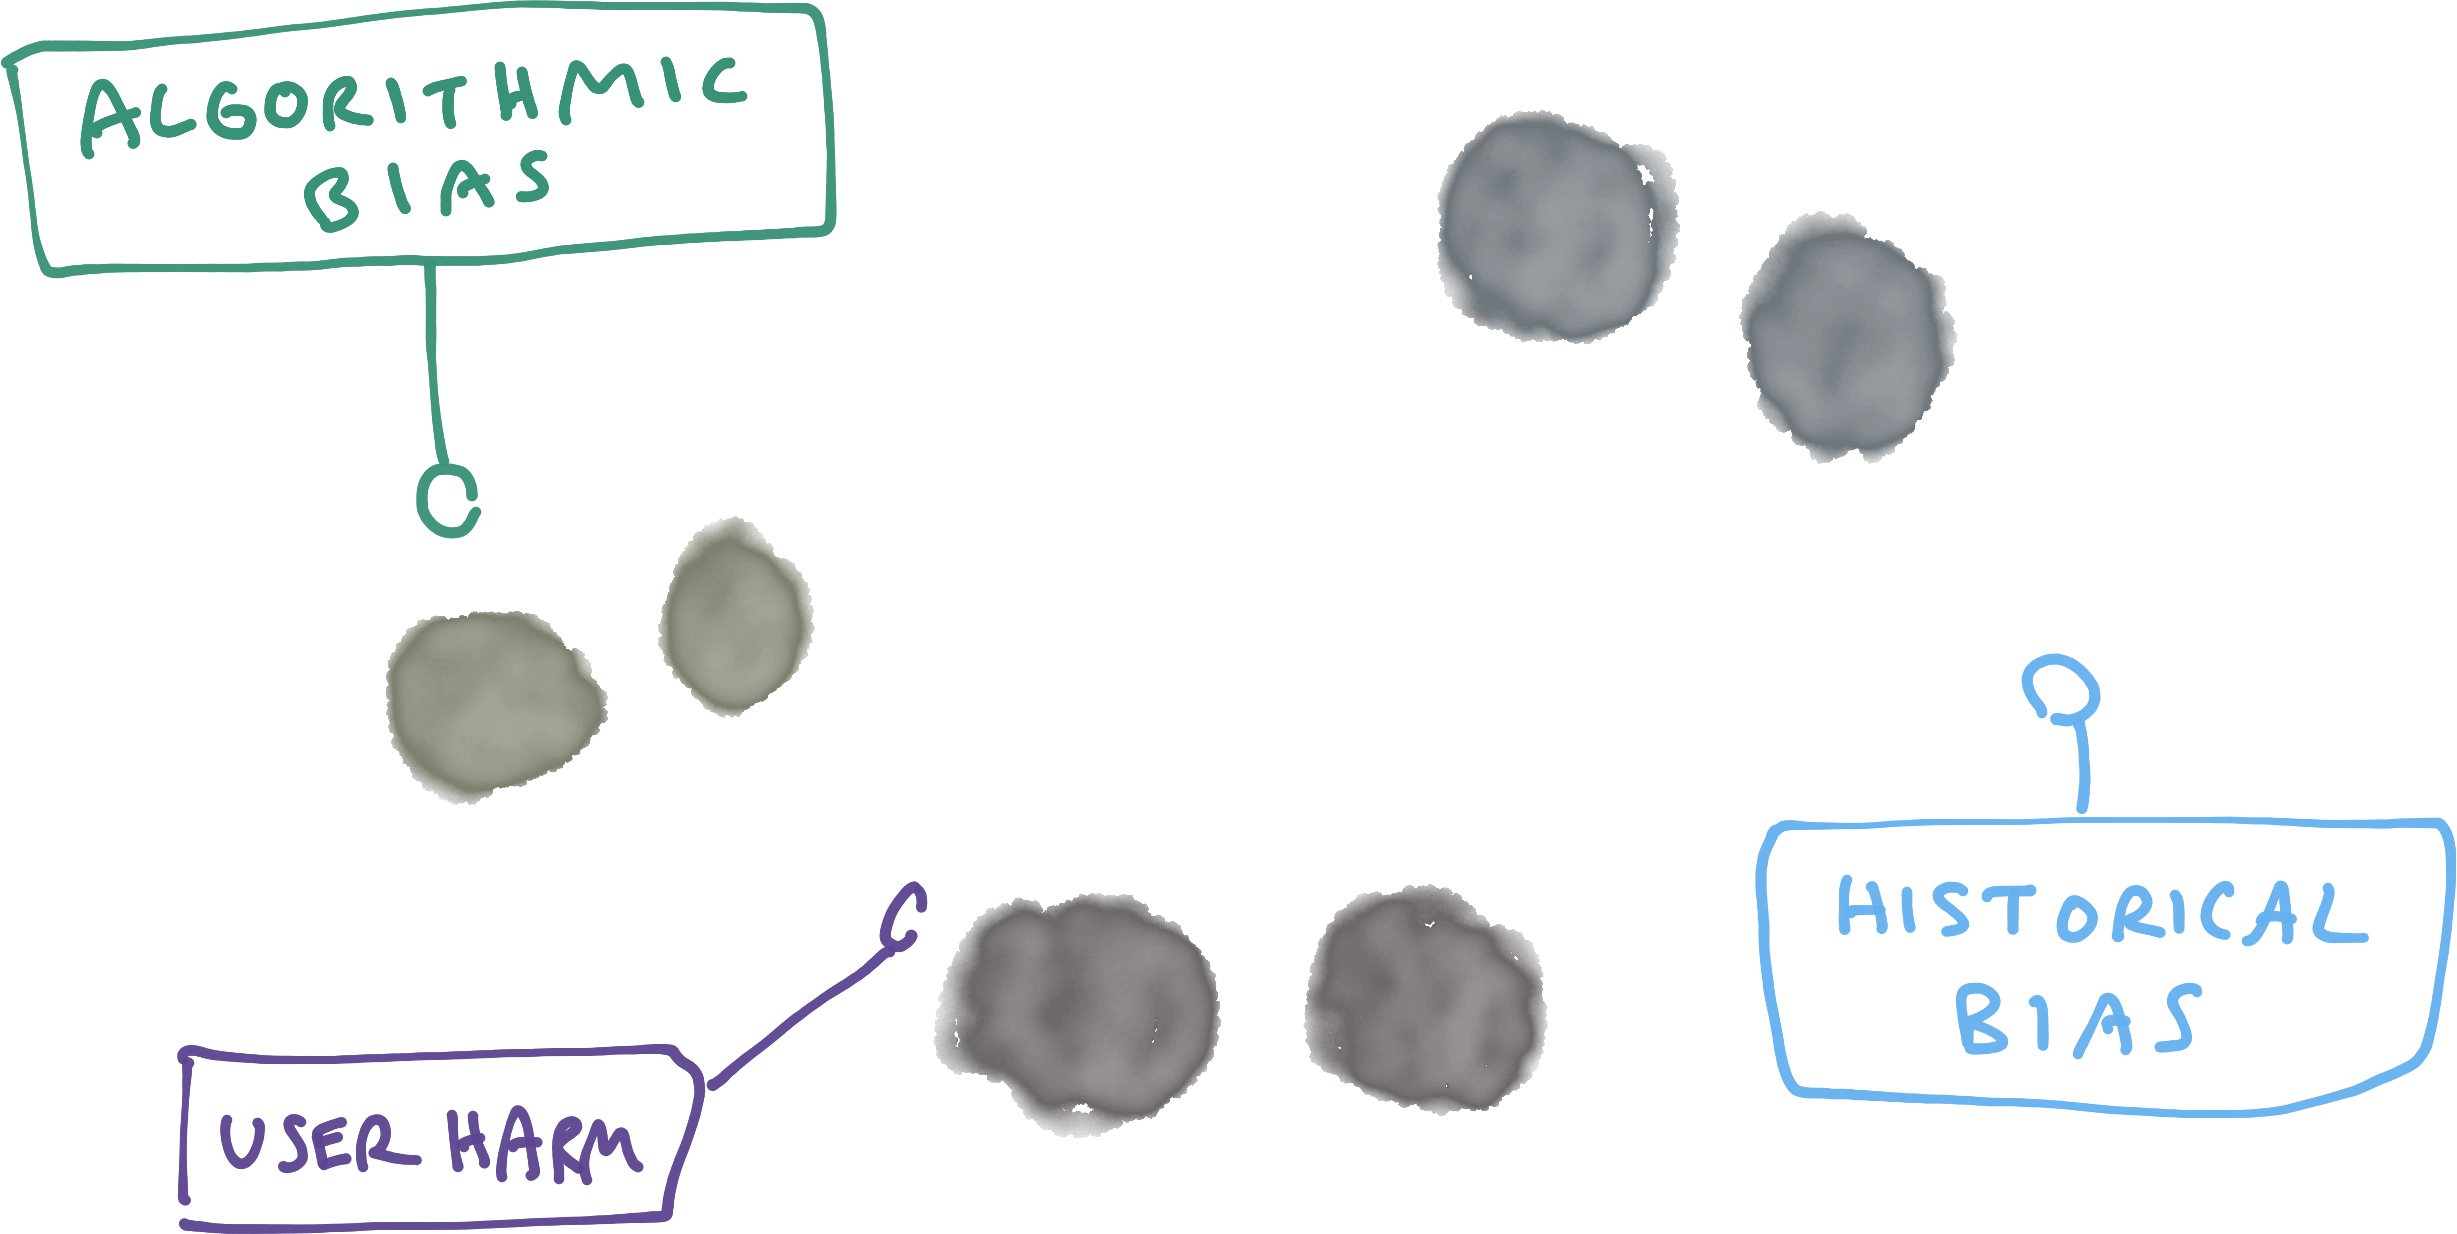 ALGORITHMIC
BIAS
HISTORICAL
BIAS
USER HARM